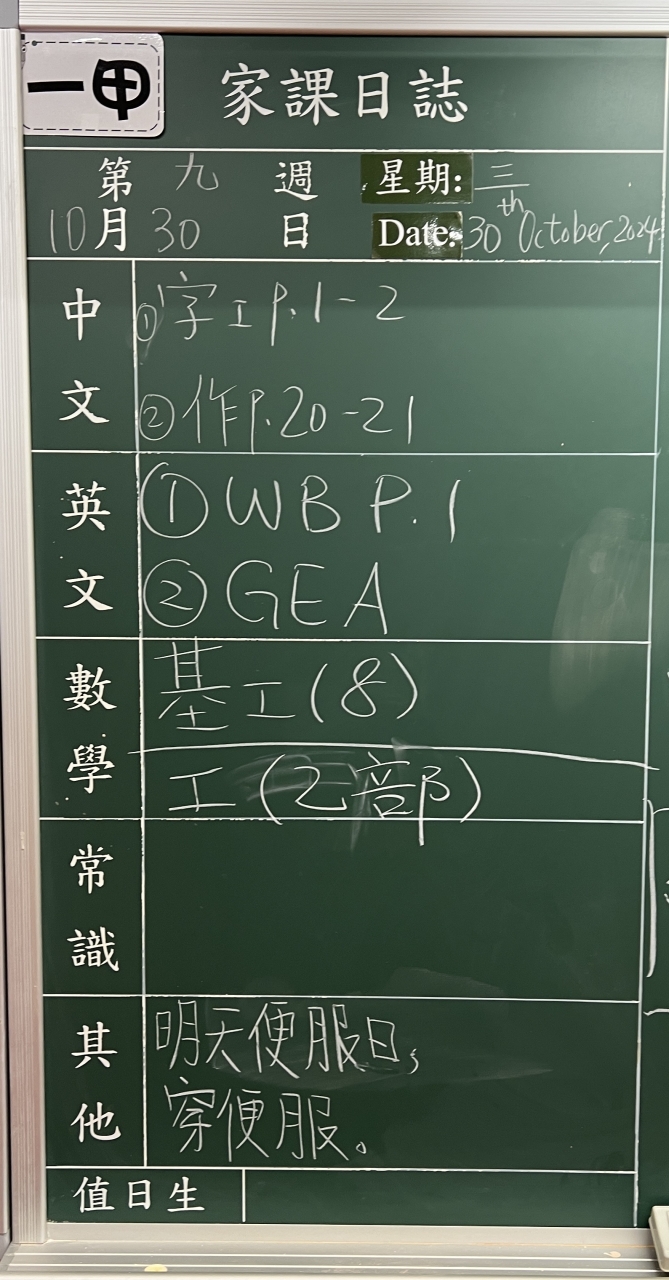 一甲
家課日誌
第九週 星期:三
10月30日 Date:30th October,2024
中文
①字工P.1-2
②作P.20-21
英文
①WB P.1
②GEA
數學
基工(8)
工(乙部)
常識
其他
明天便服日,
穿便服。
值日生